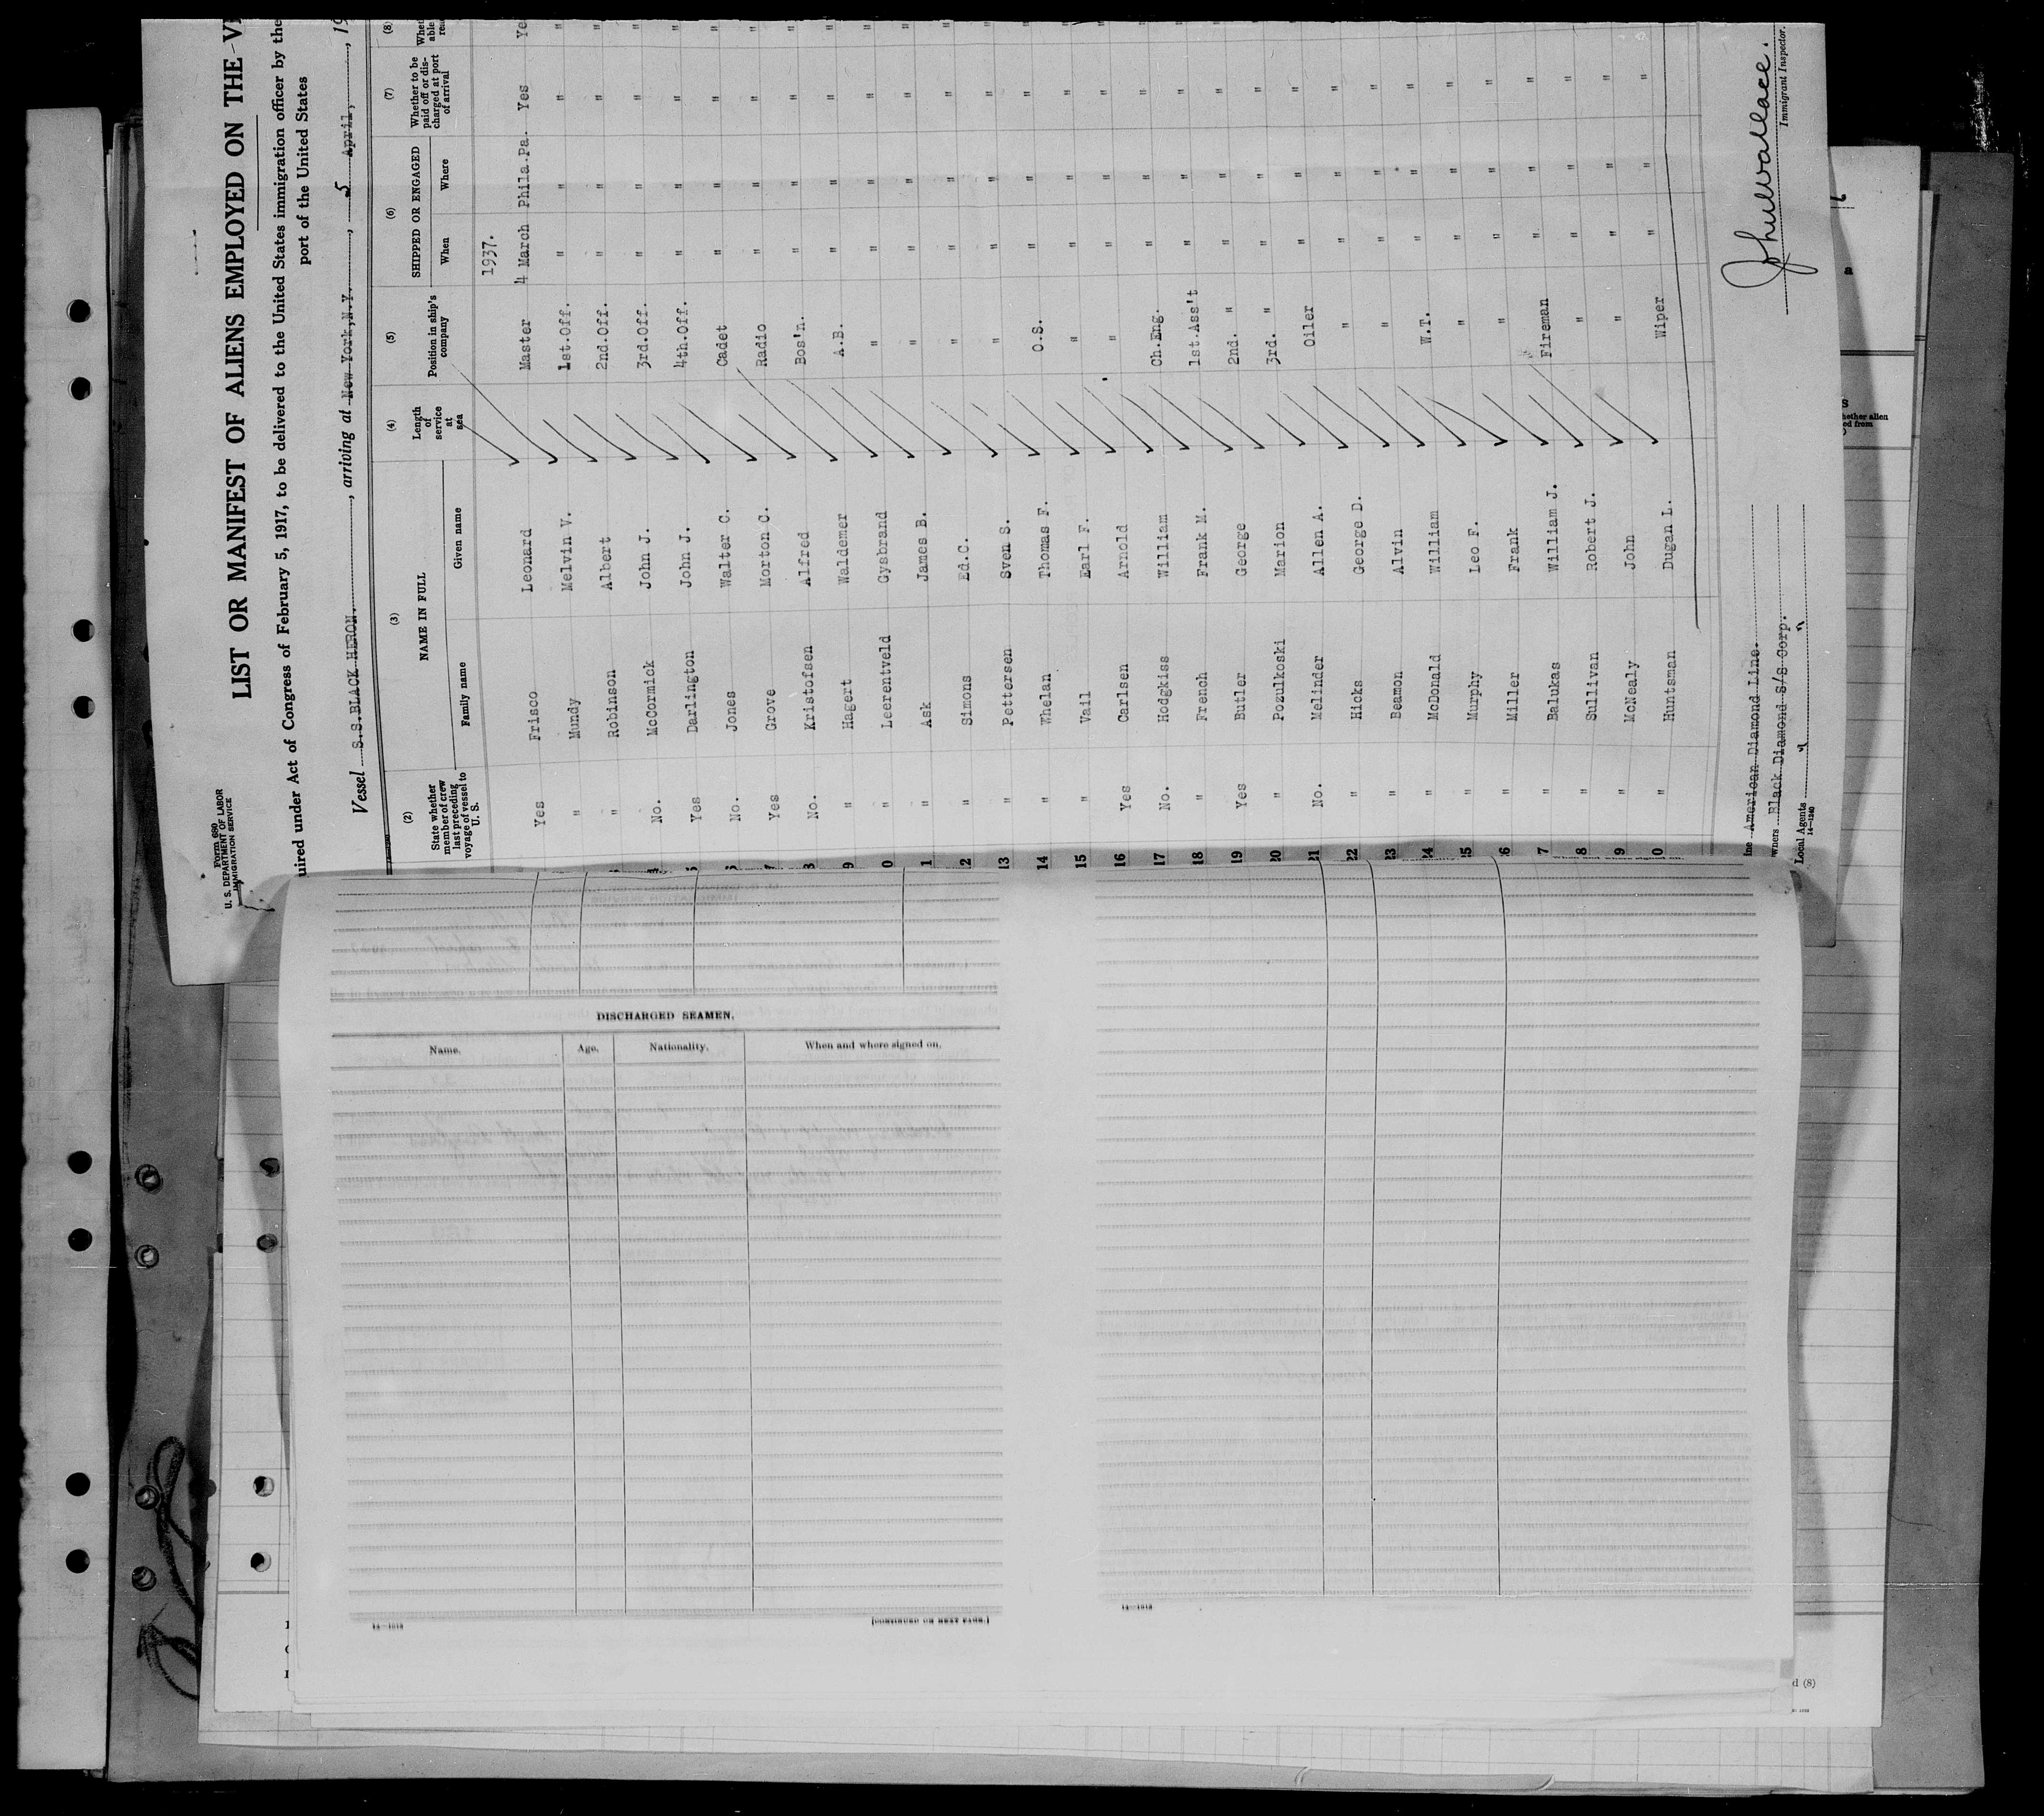 Form 680
U. S. DEPARTMENT OF LABOR
IMMIGRATION SERVICE
LIST OR MANIFEST OF ALIENS EMPLOYED ON THE
uired under Act of Congress of February 5, 1917, to be delivered to the United States immigration officer by the
port of the United States
Vessel S.S.BLACK HERON. , arriving at New York,N.Y. , 5 April, , 19
(2) (3) (4) (5) (6) (7) (8)
State whether member of crew last preceding voyage of vessel to U. S. NAME IN FULL Family name Given name Length of service at sea Position in ship's company SHIPPED OR ENGAGED When Where Whether to be paid off or discharged at port of arrival
1937.
Yes Frisco Leonard Master 4 March Phila.Pa. Yes Ye
" Mundy Melvin V. 1st.Off. " " " "
" Robinson Albert 2nd.Off. " " " "
No. McCormick John J. 3rd.Off. " " " "
Yes Darlington John J. 4th.Off. " " " "
No. Jones Walter C. Cadet " " " "
Yes Grove Morton C. Radio " " " "
No. Kristofsen Alfred Bos'n. " " " "
9 " Hagert Waldemer A.B. " " " "
0 " Leerentveld Gysbrand " " " " "
1 " Ask James B. " " " " "
12 " Simons Ed.C. " " " " "
13 " Pettersen Sven S. " " " " "
14 " Whelan Thomas F. O.S. " " " "
15 " Vail Earl F. " " " " "
16 Yes Carlsen Arnold " " " " "
17 No. Hodgkiss William Ch.Eng. " " " "
18 " French Frank M. 1st.Ass't " " " "
19 Yes Butler George 2nd. " " " " "
20 " Pozulkoski Marion 3rd. " " " " "
21 No. Melinder Allen A. Oiler " " " "
22 " Hicks George D. " " " " "
23 " Beamon Alvin " " " " "
24 " McDonald William W.T. " " " "
25 " Murphy Leo F. " " " " "
26 " Miller Frank " " " " "
7 " Balukas William J. Fireman " " " "
8 " Sullivan Robert J. " " " " "
9 " McNealy John " " " " "
0 " Huntsman Dugan L. Wiper " " " "
ine American Diamond Line.
wners Black Diamond S/S Corp.
Local Agents " "
14—1240
Immigrant Inspector.
DISCHARGED SEAMEN.
Name. Age. Nationality. When and where signed on.
14—1313
[CONTINUED ON NEXT PAGE.]
14—1313
hether alien
ed from
d (8)